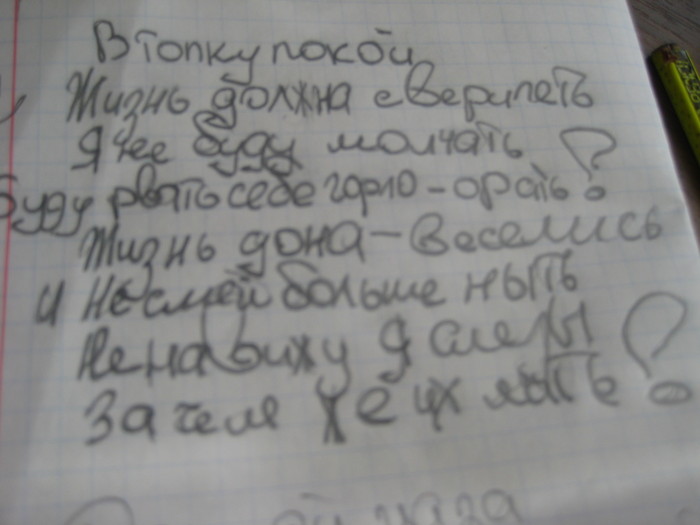 В топку покой
Жизнь должна сверипеть
Я не буду молчать
буду рвать себе горло - орать?
Жизнь дона - веселись
и не смей больше ныть
Ненавижу я слезы
Зачем же их лить?